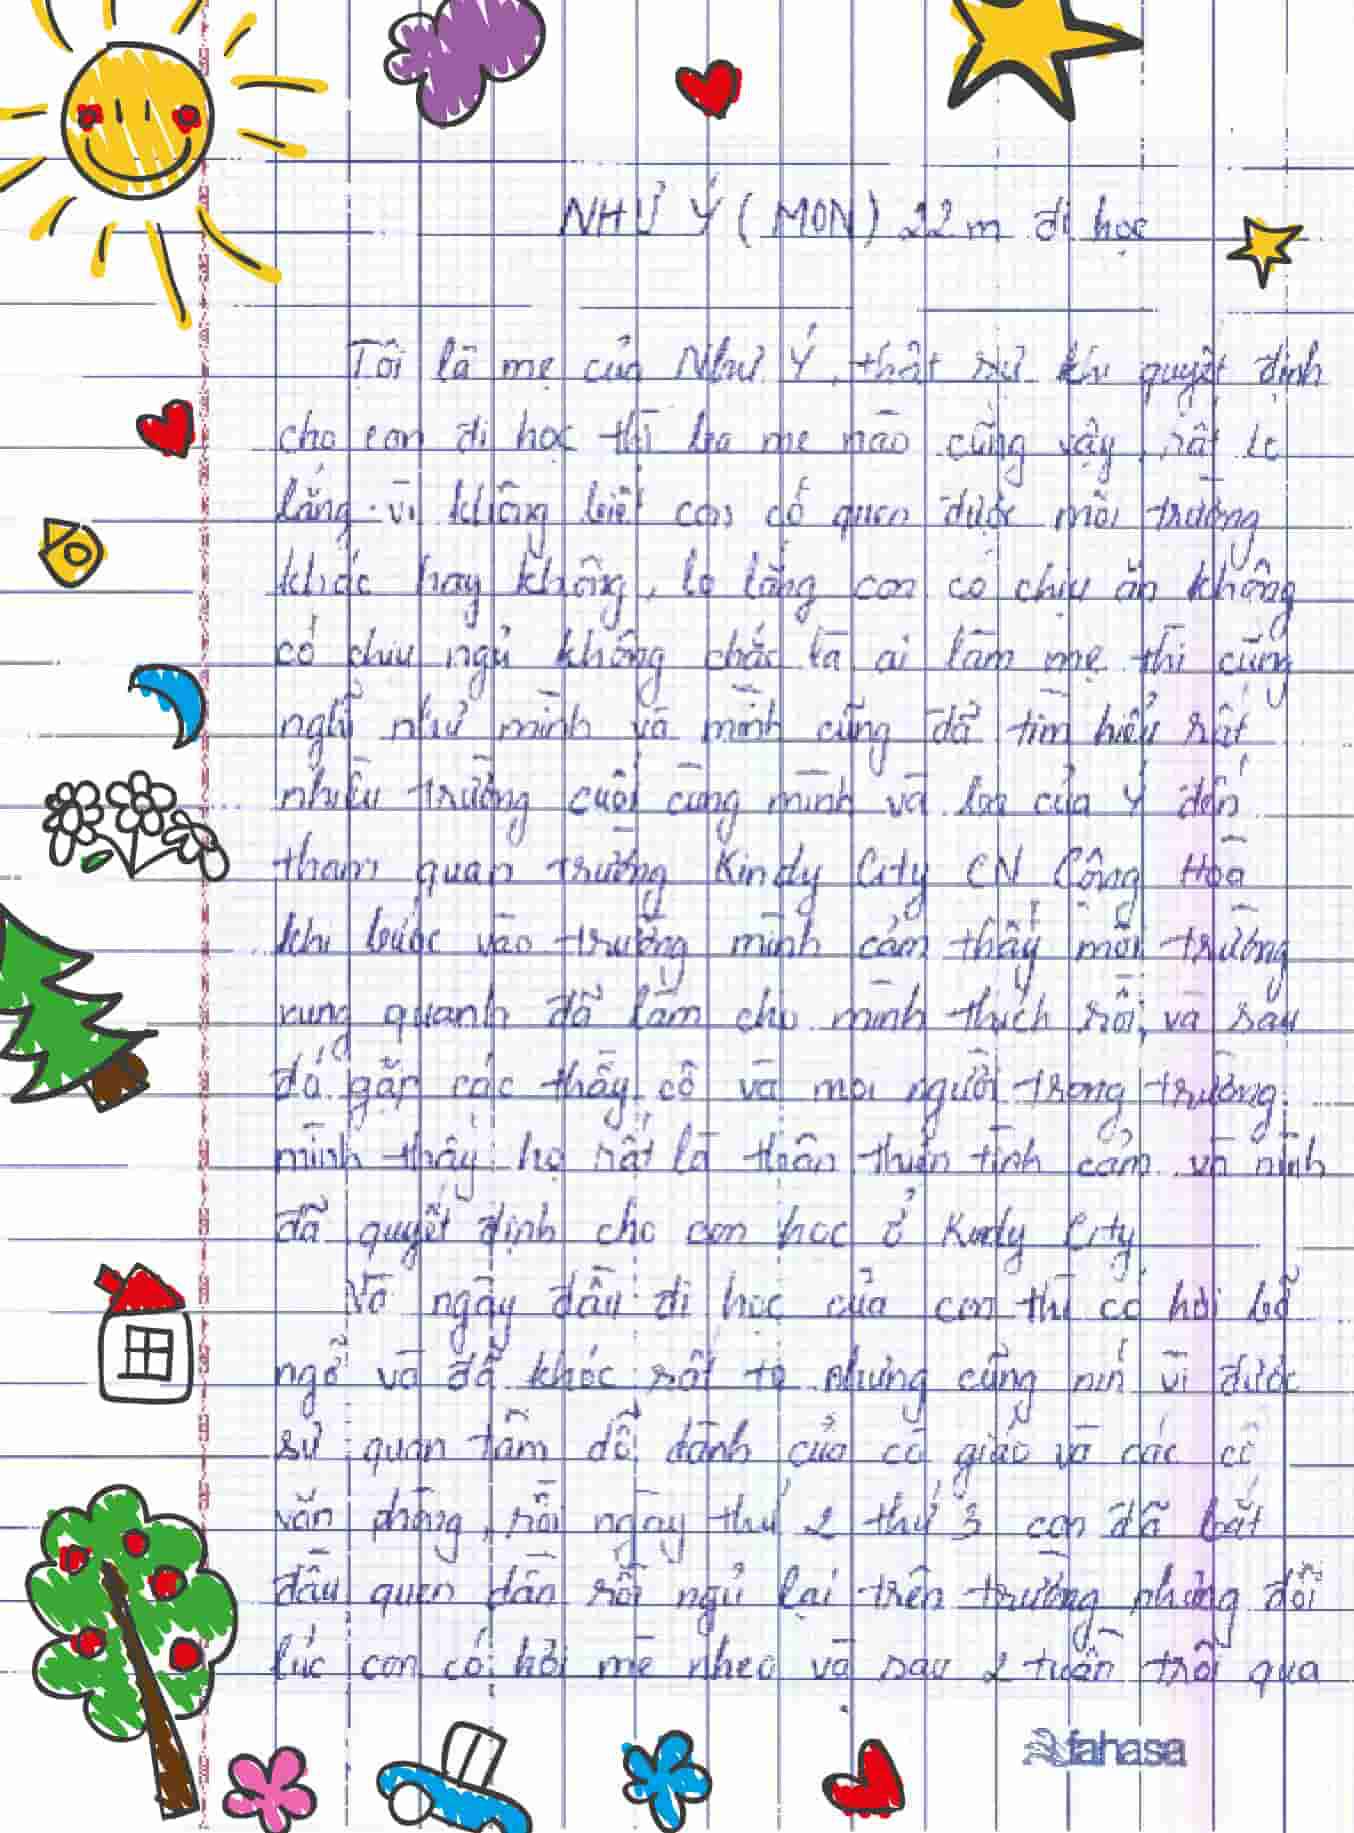 NHƯ Ý (MON) 22m đi học
Tôi là mẹ của Như Ý, thật sự khi quyết định
cho con đi học thì ba mẹ nào cũng vậy, rất lo
lắng vì không biết con có quen được môi trường
khác hay không, lo lắng con có chịu ăn không
có chịu ngủ không chắc là ai làm mẹ thì cũng
nghĩ như mình và mình cũng đã tìm hiểu rất
nhiều trường cuối cùng mình và ba của Ý đến
tham quan trường Kindy City CN Cộng Hoà
khi bước vào trường mình cảm thấy môi trường
xung quanh đã làm cho mình thích rồi, và sau
đó gặp các thầy cô và mọi người trong trường
mình thấy họ rất là thân thiện tình cảm và mình
đã quyết định cho con học ở Kindy City
Và ngày đầu đi học của con thì có hơi bỡ
ngỡ và đã khóc rất to nhưng cũng nín vì được
sự quan tâm dỗ dành của cô giáo và các cô
văn phòng, rồi ngày thứ 2 thứ 3 con đã bắt
đầu quen dần rồi ngủ lại trên trường nhưng đôi
lúc con có hơi mè nheo và sau 2 tuần trôi qua
fahasa